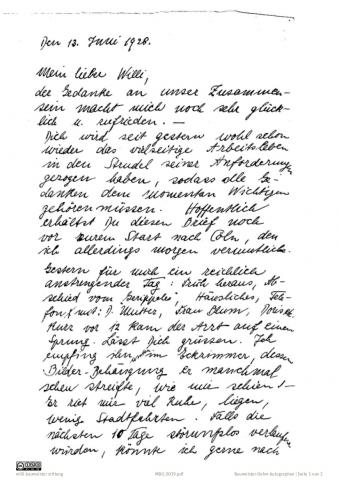 Den 13. Juni 1928.
Mein lieber Willi,
der Gedanke an unser Zusammen-
sein macht mich noch sehr glück-
lich u. zufrieden. —
Dich wird seit gestern wohl schon
wieder das vielseitige Arbeitsleben
in den Strudel seiner Anforderungen
gezogen haben, sodass alle Ge-
danken dem momentan Wichtigen
gehören müssen. Hoffentlich
erhältst Du diesen Brief noch
vor eurem Start nach Cöln, den
ich allerdings morgen vermutlich.
Gestern für mich ein reichlich
anstrengender Tag: Früh heraus, Ab-
schied vom Häusliches, Tele-
fon mit: D. Mutter, Frau Blum,
Kurz vor 12 kam der Arzt auf einen
Sprung. Lässt Dich grüssen. Ich
empfing ihn im Eckzimmer, dessen
Bilder-Behängung er manchmal
scheu streifte, wie mir schien! —
Er riet mir viel Ruhe, liegen,
wenig Stadtfahrten. Falls die
nächsten 10 Tage störungslos verlaufen
würden, könnte ich gerne nach
willi baumeister stiftung
Baumeister-Online Autographen | Seite 1 von 2